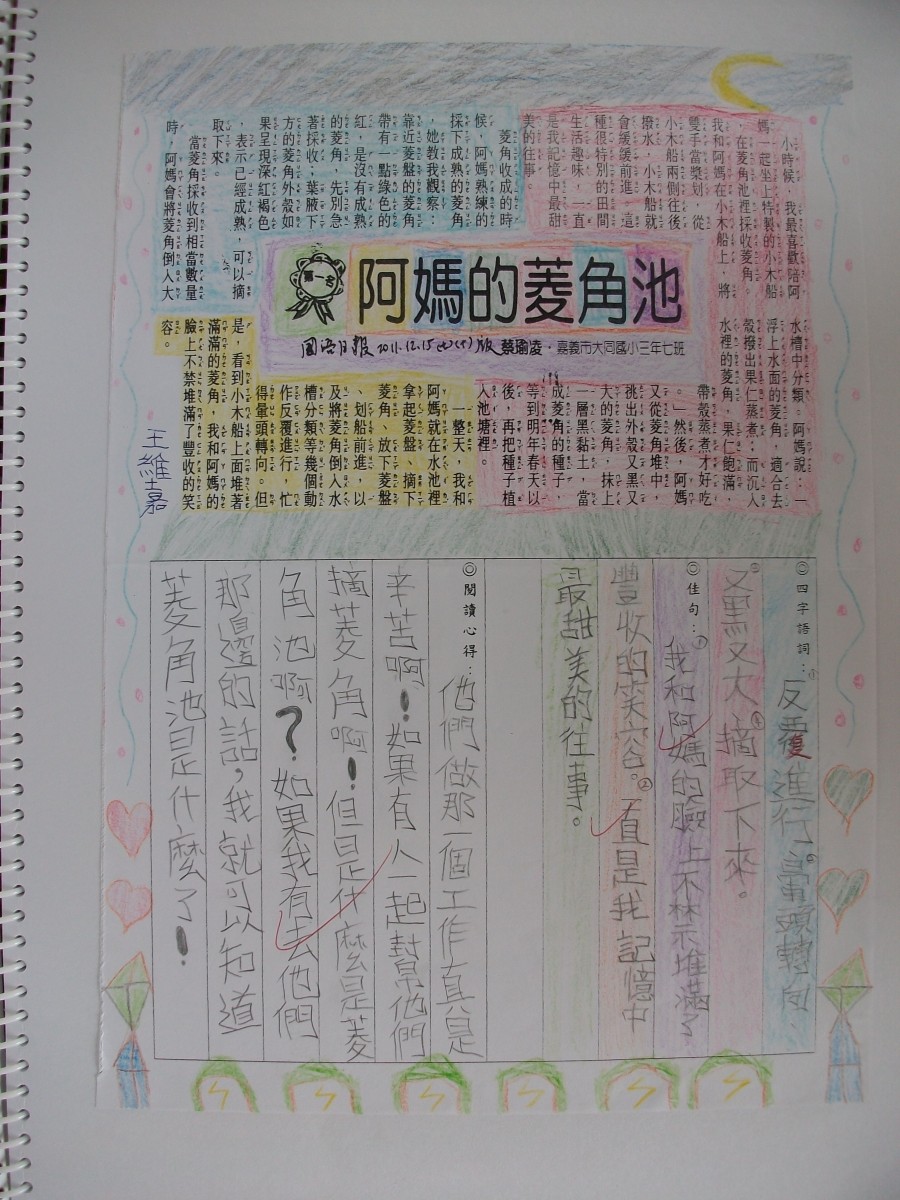 阿媽的菱角池
第一名
國語日報 2011.12.15(七)版 蔡瑜凌・嘉義市大同國小三年七班
小時候,我最喜歡陪阿
媽一起坐上特製的小木船
,在菱角池裡採收菱角。
我和阿媽在小木船上,將
雙手當槳划,從
小木船兩側往後
撥水,小木船就
會緩緩前進。這
種很特別的田間
生活趣味,一直
是我記憶中最甜
美的往事。
菱角收成的時
候,阿媽熟練的
採下成熟的菱角
,她教我觀察:
靠近菱盤的菱角
帶有一點綠色的
紅,是沒有成熟
的菱角,先別急
著採收;葉腋下
方的菱角外殼如
果呈現深紅褐色
,表示已經成熟,可以摘
取下來。
當菱角採收到相當數量
時,阿媽會將菱角倒入大
水槽中分類。阿媽說:「
浮上水面的菱角,適合去
殼撥出果仁蒸煮;而沉入
水裡的菱角,果仁飽滿,
帶殼蒸煮才好吃
。」然後,阿媽
又從菱角堆中,
挑出外殼又黑又
大的菱角,抹上
一層黑黏土,當
成菱角的種子,
等到明年春天以
後,再把種子植
入池塘裡。
一整天,我和
阿媽就在水池裡
拿起菱盤、摘下
菱角、放下菱盤
、划船前進,以
及將菱角倒入水
槽分類等幾個動
作反覆進行,忙
得暈頭轉向。但
是,看到小木船上面堆著
滿滿的菱角,我和阿媽的
臉上不禁堆滿了豐收的笑
容。
王維嘉
◎四字語詞:①反覆進行、②暈頭轉向、
③又黑又大④摘取下來。
◎佳句:①我和阿媽的臉上不禁堆滿了
豐收的笑容。②一直是我記憶中
最甜美的往事。
◎閱讀心得:他們做那一個工作真是
辛苦啊!如果有人一起幫他們
摘菱角啊!但是什麼是菱
角池啊?如果我有去他們
那邊的話,我就可以知道
菱角池是什麼了!